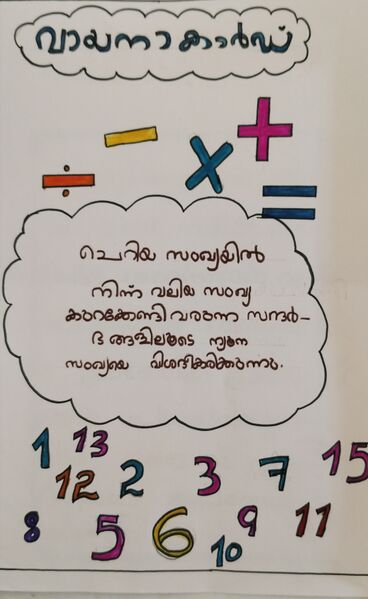 വായനാകാർഡ്
÷ − × + =
ചെറിയ സംഖ്യയിൽ
നിന്ന് വലിയ സംഖ്യ
കുറക്കേണ്ടിവരുന്ന സന്ദർ-
ഭങ്ങളിലൂടെ ന്യൂന
സംഖ്യയെ വിശദീകരിക്കുന്നു.
1 13 12 2 3 7 15
8 5 6 10 9 11